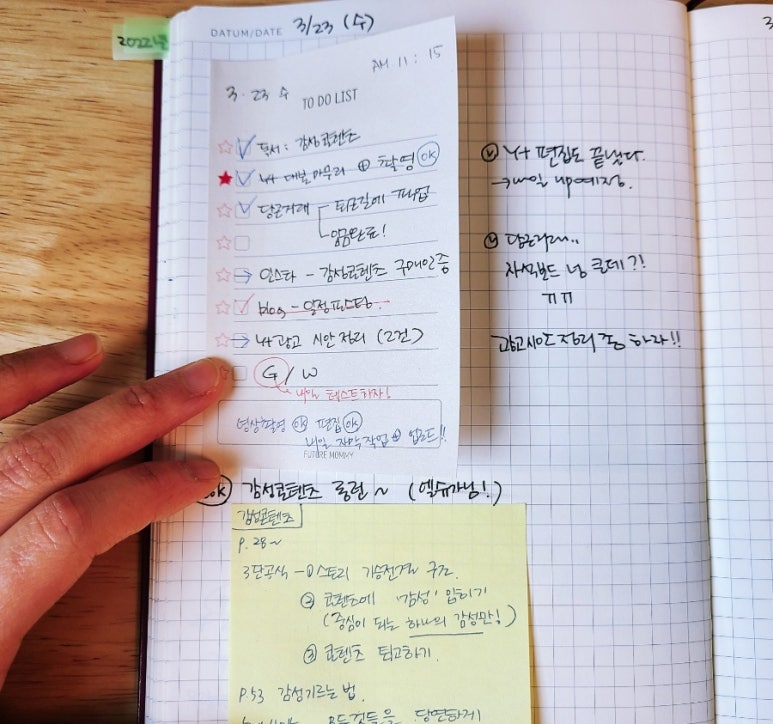 2022년
DATUM/DATE 3/23 (수)
3
AM 11 : 15
3. 23 수
TO DO LIST
독서 : 감성콘텐츠
Y+ 대본마무리 ⊕ 촬영 OK
당근거래 퇴근길에 픽업
입금완료!
인스타 - 감성콘텐츠 구매인증
blog - 일정포스팅.
Y+ 광고 시안 정리 (2건)
G / W
내일 테스트하자!
영상촬영 OK 편집 OK
내일 자막작업 ⊕ 업로드!!
FUTURE MOMMY
Y+ 편집도 끝냈다.
→ 내일 up예정.
당근거래..
자석보드 넘 큰데?!
ㅠㅠ
광고시안 정리 좀 하라!!
OK 감성콘텐츠 룽런~ (엘슈가님!)
감성콘텐츠
P. 28~
3단공식 - ① 스토리 기승전결 구조.
② 콘텐츠에 '감성' 입히기
(중심이 되는 하나의 감성만!)
③ 콘텐츠 퇴고하기.
P.53 감성기르는 법.
모든것들을 당연하게